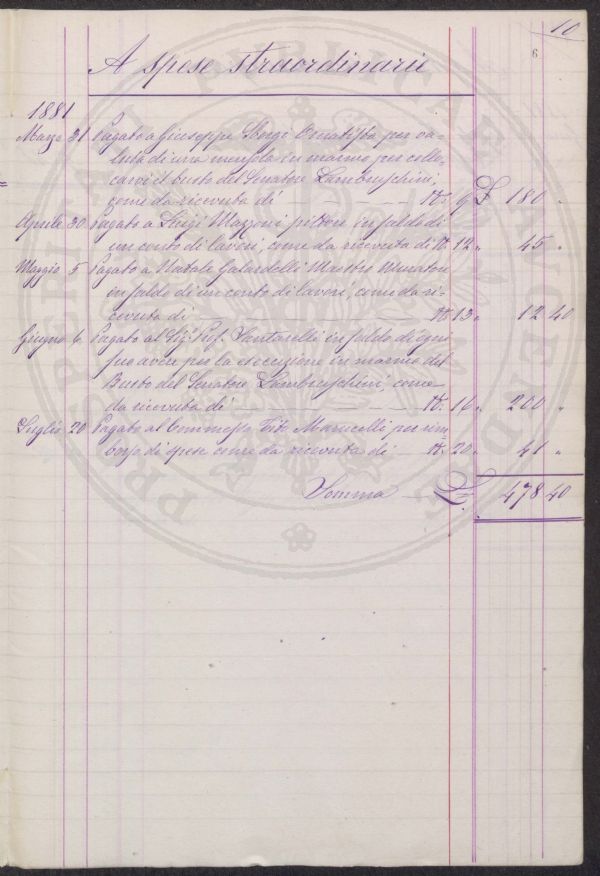 10
6
A spese straordinarie
1881
Marzo 31 Pagato a Giuseppe Sorgi Ornatista per va-
luta di una mensola in marmo per collo-
carvi il busto del Senatore Lambruschini,
come da ricevuta di — N. 9 £ 180 "
Aprile 30 Pagato a Luigi Mazzoni pittore in saldo di
un conto di lavori, come da ricevuta di N. 12 " 45 "
Maggio 5 Pagato a Natale Galardelli Maestro Muratore
in saldo di un conto di lavori, come da ri-
cevuta di — N. 13 " 12 40
Giugno 6 Pagato al Sig. Prof. Santarelli in saldo d'ogni
suo avere per la esecuzione in marmo del
Busto del Senatore Lambruschini, come
da ricevuta di — N. 16 " 200 "
Luglio 20 Pagato al Commesso Tito Marucelli per rim
borso di spese come da ricevuta di — N. 20 " 41 "
Somma £ 478 40
PROSPERITATI PUBLICAE AUGENDAE